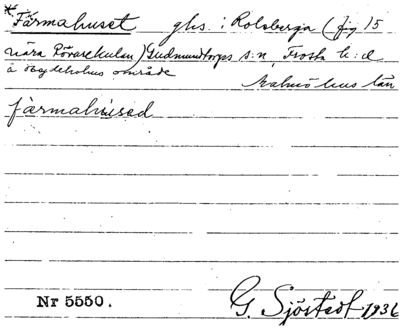 * Färmahuset ghs. i Rolsberga (fig 15
nära Rövarekulan) Gudmundtorps s:n, Frosta h:d
å område
Malmöhus län
färmahúsed
Nr 5550.
G. Sjöstedt 1936